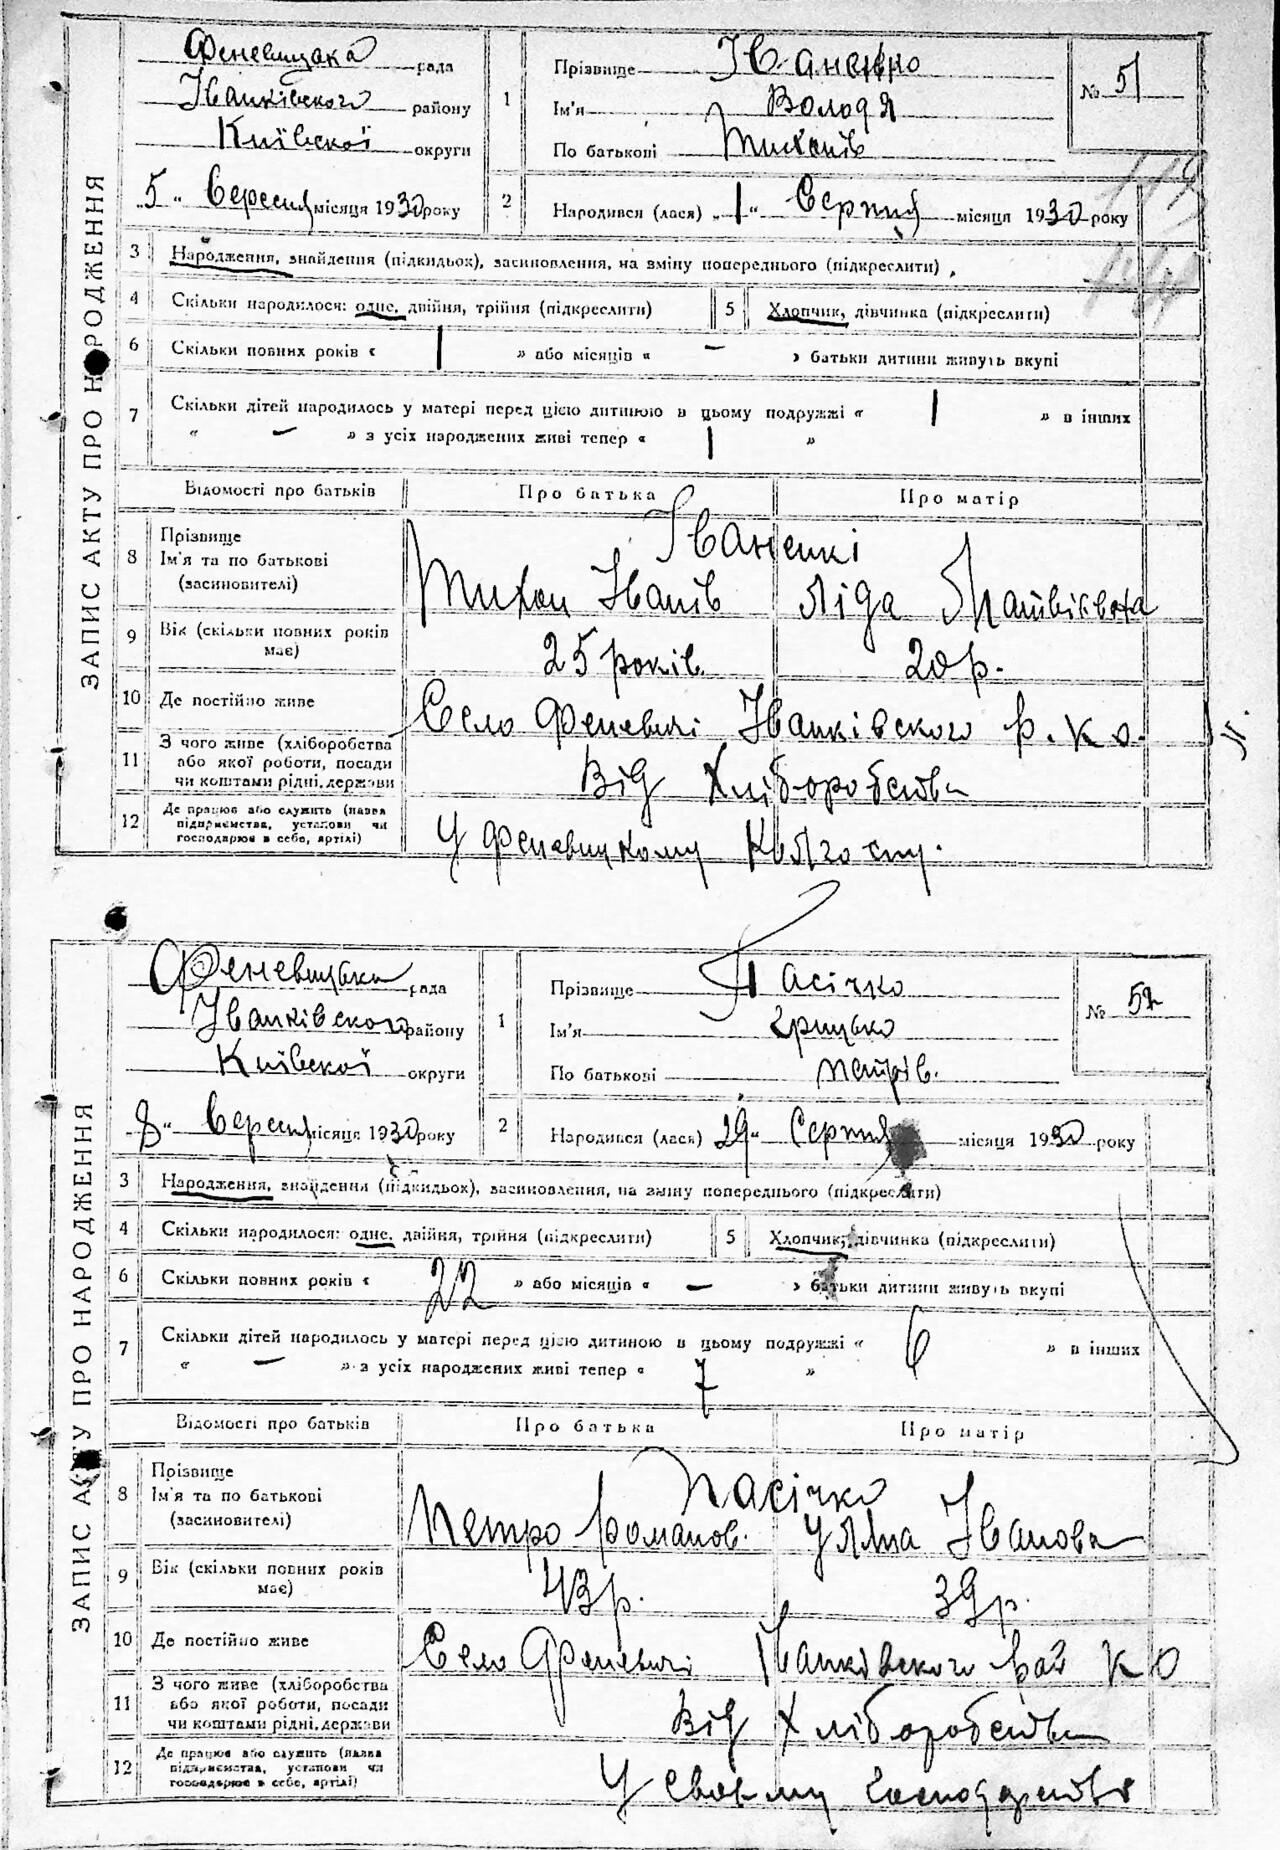 ЗАПИС АКТУ ПРО НАРОДЖЕННЯ
Феневицька рада
Іванківского району
Київскої округи
„5" Вересня місяця 1930 року
1 Прізвище Іваненко
Ім'я Володя
По батькові Тихонів
№ 51
2 Народився (лася) „1" Серпня місяця 1930 року
3 Народження, знайдення (підкидьок), засиновлення, на зміну попереднього (підкреслити)
4 Скільки народилося: одне, двійня, трійня (підкреслити)
5 Хлопчик, дівчинка (підкреслити)
6 Скільки повних років « 1 » або місяців « – » батьки дитини живуть вкупі
7 Скільки дітей народилось у матері перед цією дитиною в цьому подружжі « 1 » в інших
« – » з усіх народжених живі тепер « 1 »
Відомості про батьків Про батька Про матір
8 Прізвище
Ім'я та по батькові
(засиновителі)
Іваненкі
Тихон Іванів Ліда Матвіївна
9 Вік (скільки повних років має) 25 років 20 р.
10 Де постійно живе Село Феневичі Іванківского р. К. О.
11 З чого живе (хліборобства
або якої роботи, посади
чи коштами рідні, держави
Від Хліборобства
12 Де працює або служить (назва
підприємства, установи чи
господарює в себе, артілі)
У Феневицкому Колгоспу.
ЗАПИС АКТУ ПРО НАРОДЖЕННЯ
Феневицька рада
Іванківского району
Київскої округи
„8" Вересня місяця 1930 року
1 Прізвище Пасічко
Ім'я Грицько
По батькові Петрів.
№ 52
2 Народився (лася) 29" Серпня місяця 1930 року
3 Народження, знайдення (підкидьок), засиновлення, на зміну попереднього (підкреслити)
4 Скільки народилося: одне, двійня, трійня (підкреслити)
5 Хлопчик, дівчинка (підкреслити)
6 Скільки повних років « 22 » або місяців « – » батьки дитини живуть вкупі
7 Скільки дітей народилось у матері перед цією дитиною в цьому подружжі « 6 » в інших
« – » з усіх народжених живі тепер « 7 »
Відомості про батьків Про батька Про матір
8 Прізвище
Ім'я та по батькові
(засиновителі)
Пасічко
Петро Романов. Уляна Іванова
9 Вік (скільки повних років має) 43 р. 39 р.
10 Де постійно живе Село Феневичі Іванківского Рай К О
11 З чого живе (хліборобства
або якої роботи, посади
чи коштами рідні, держави
Від Хліборобства
12 Де працює або служить (назва
підприємства, установи чи
господарює в себе, артілі)
У своєму господарстві